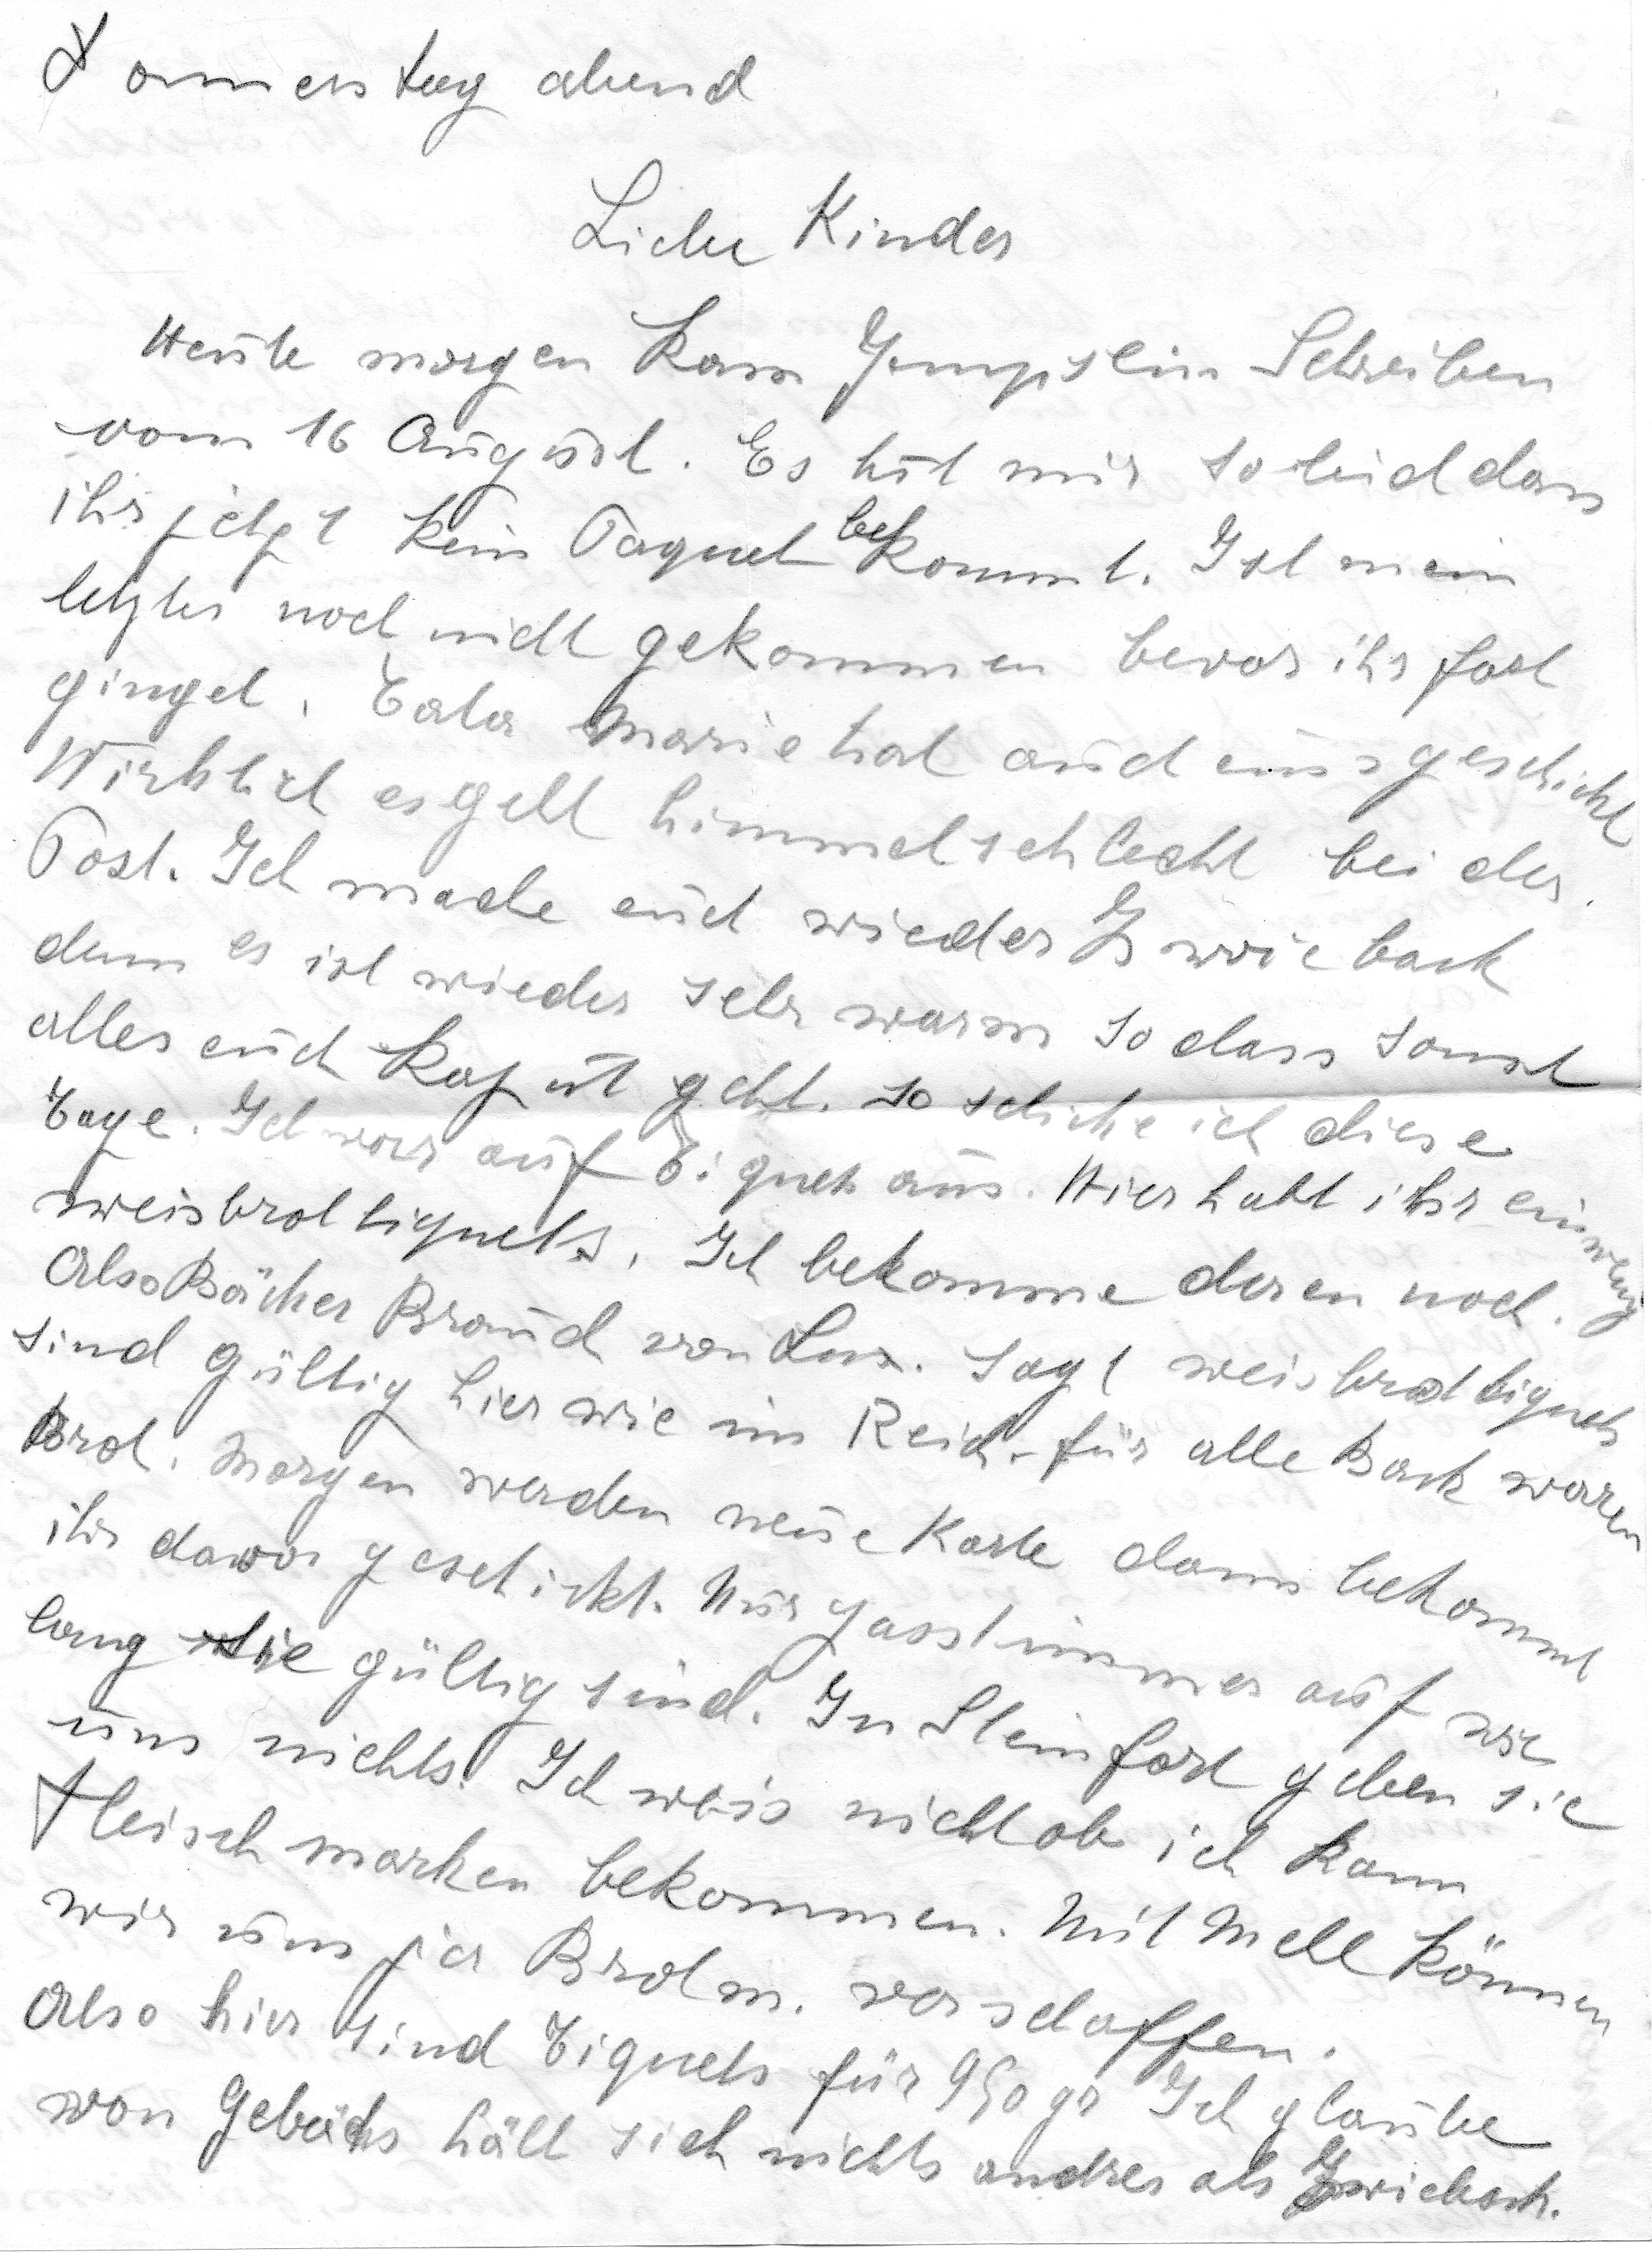 Donnerstag abend
Liebe Kinder
Heute morgen kam Jemps ein Schreiben
vom 16 August. Es tut mir so leid dass
ihr jetzt kein Paquet bekommt. Ist mein
letztes noch nicht gekommen bevor ihr fort
ginget. Tata Marie hat auch eins geschickt
Wirklich es geht himmelschlecht bei der
Post. Ich mache euch wieder Zwieback
denn es ist wieder sehr warm so dass sonst
alles euch kaput geht. so schicke ich diese
Tage. Ich war auf Tiquets aus. Hier habt ihr ein wenig
weisbrottiquets. Ich bekomme deren noch.
Also Bäcker Brauch von Lux. sagt weisbrottiquets
sind gültig hier wie im Reich - für alle Backwaren
Brot. Morgen werden neue Karte dann bekommt
ihr davon geschickt. Nur passt immer auf wie
lang sie gültig sind. In Steinfort geben sie
uns nichts. Ich weis nicht ob ich kann
Fleischmarken bekommen. Mit Mehl können
wir uns ja Brotm. verschaffen.
Also hier sind Tiquets für 950 gr Ich glaube
von Gebäcks hält sich nichts andres als Zwieback.